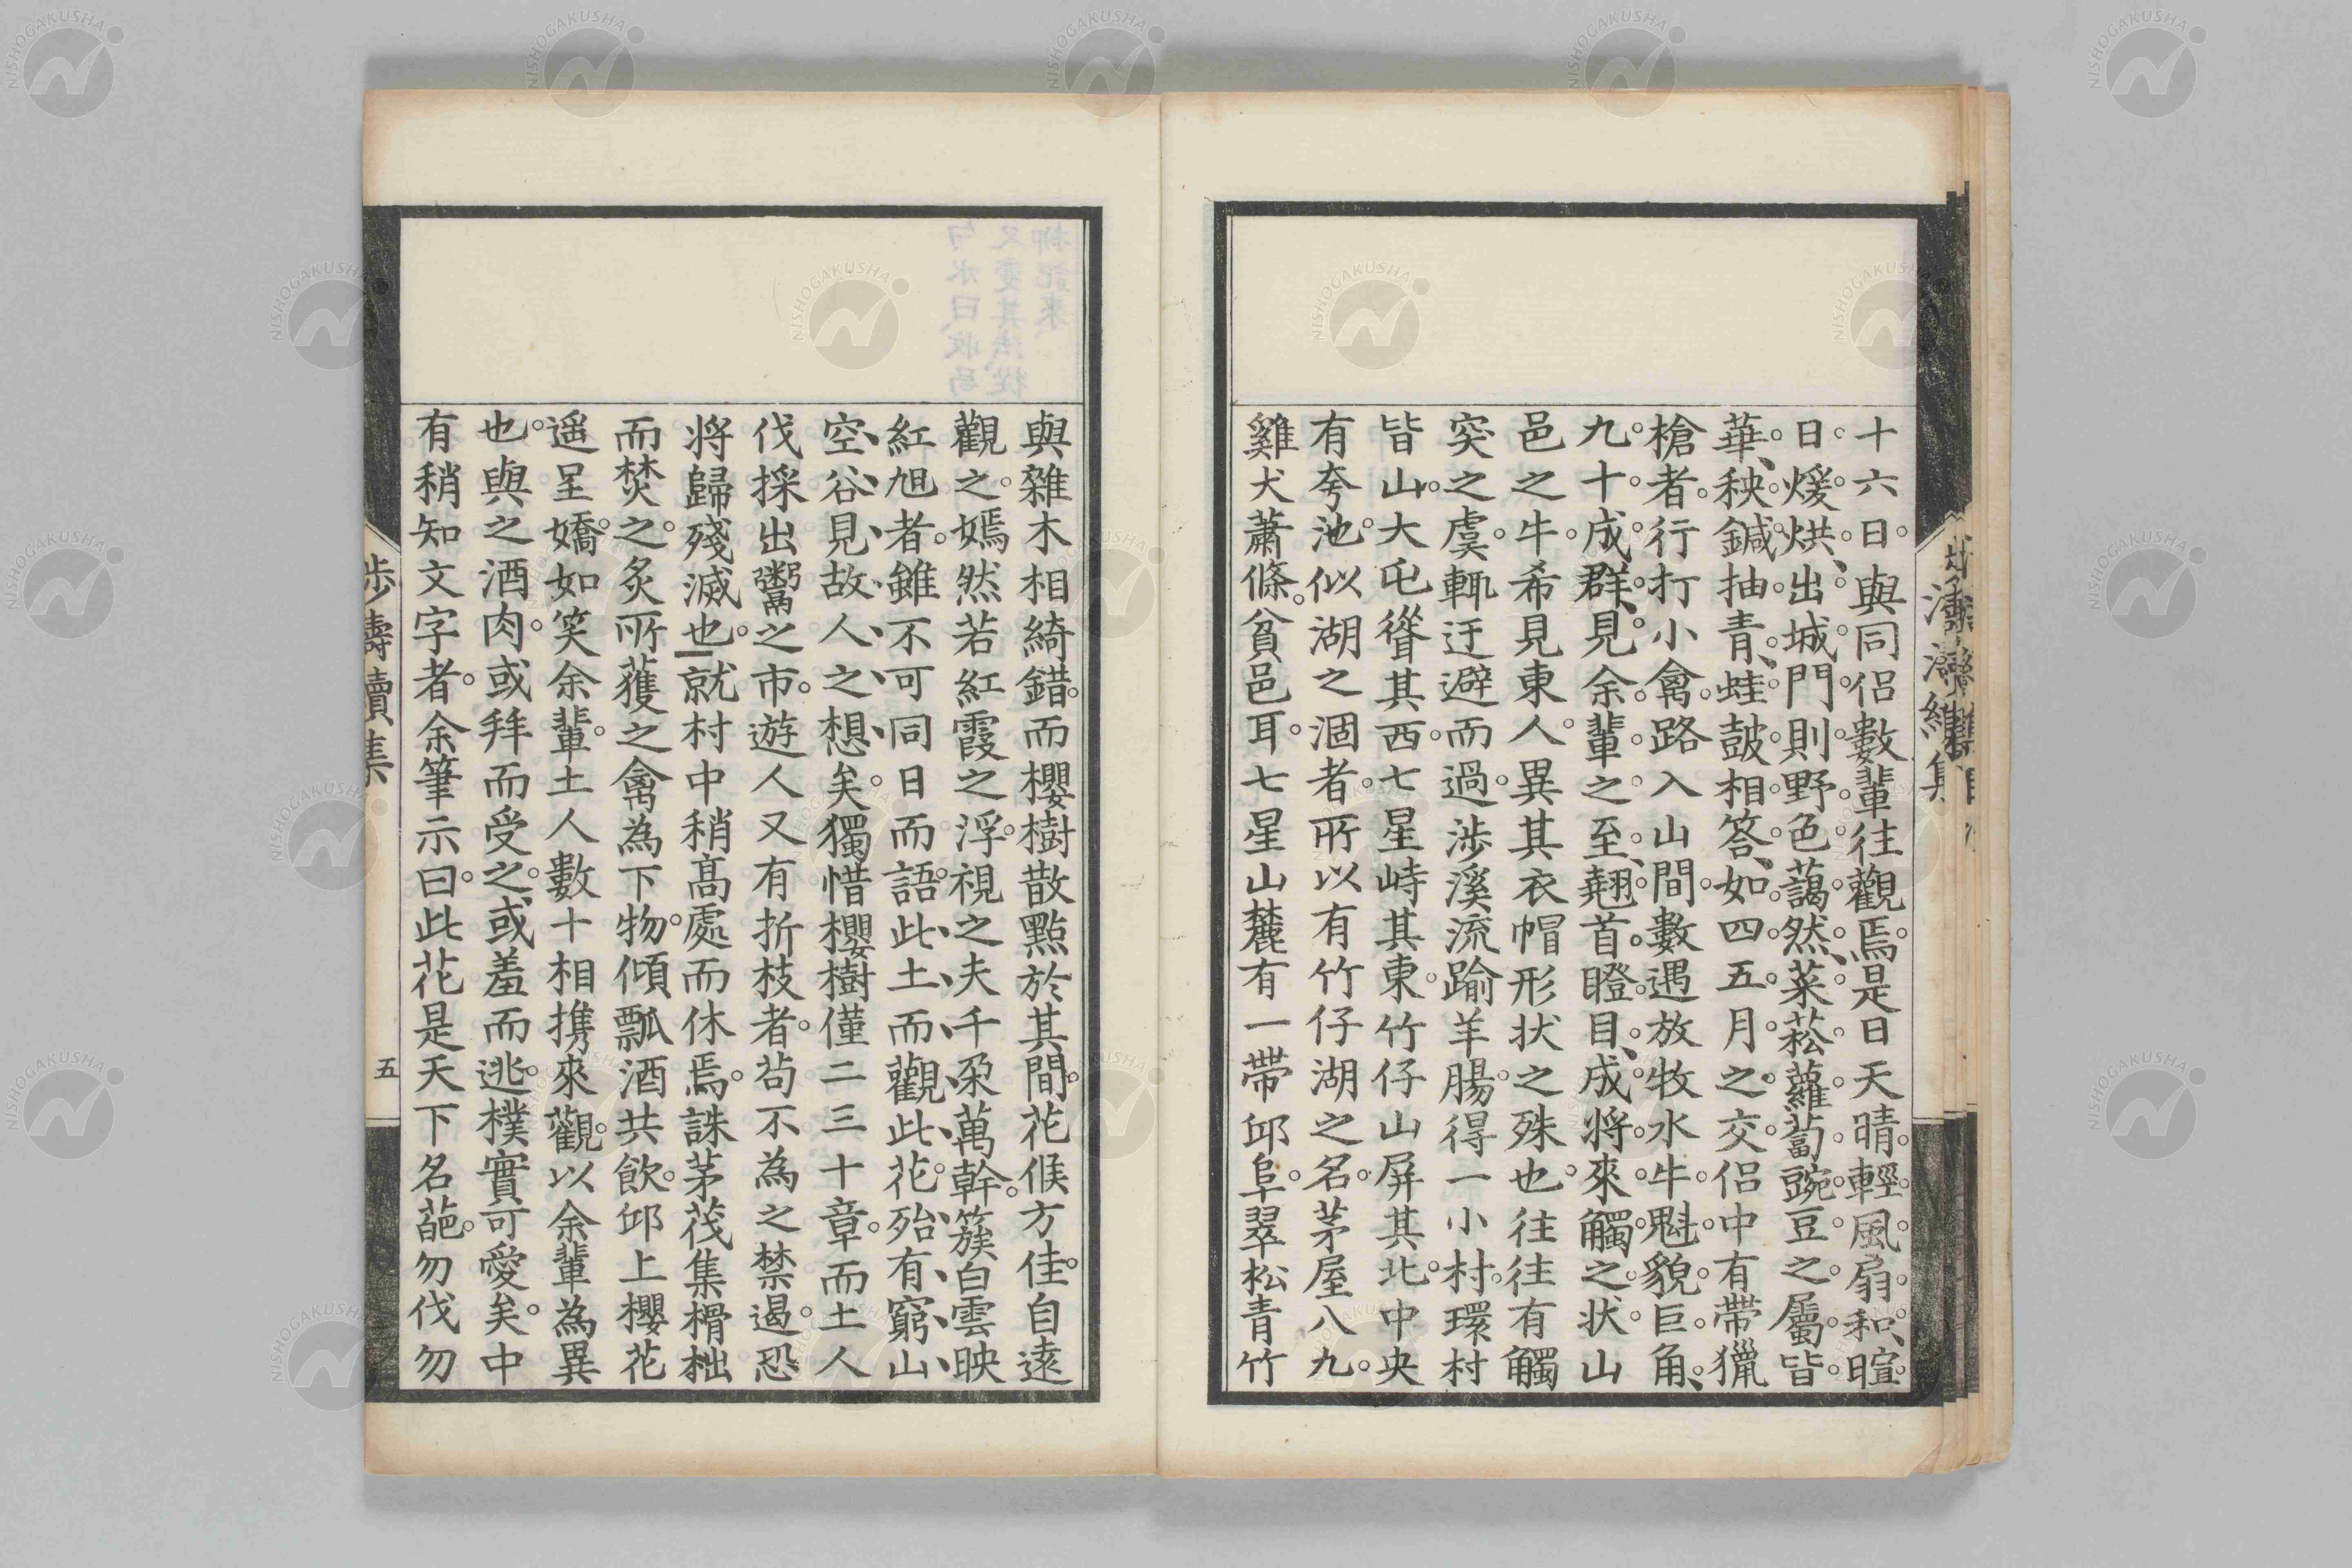 十六日與同侶數輩往觀焉是日天晴輕風扇和暄
日煖烘出城門則野色藹然菜菘蘿蔔豌豆之屬皆
華秧鍼抽青蛙鼓相答如四五月之交侶中有帶獵
槍者行打小禽路入山間數遇放牧水牛魁貌巨角
九十成群見余輩之至翹首瞪目成將來觸之状山
邑之牛希見東人異其衣帽形状之殊也往往有觸
突之虞輒迂避而過渉溪流踰羊腸得一小村環村
皆山大屯聳其西七星峙其東竹仔山屏其北中央
有夸池似湖之涸者所以有竹仔湖之名茅屋八九
雞犬蕭條貧邑耳七星山麓有一帶邱阜翠松青竹
與雜木相綺錯而櫻樹散點於其間花候方佳自遠
觀之嫣然若紅霞之浮視之夫千朶萬幹簇白雲映
紅旭者雖不可同日而語此土而觀此花殆有窮山
空谷見故人之想矣獨惜櫻樹僅二三十章而土人
伐採出鬻之市遊人又有折枝者苟不為之禁遏恐
將歸殘滅也就村中稍髙處而休焉誅茅茷集榾柮
而焚之炙所獲之禽為下物傾瓢酒共飲邱上櫻花
遥呈嬌如笑余輩土人數十相携來觀以余輩為異
也與之酒肉或拜而受之或羞而逃樸實可愛矣中
有稍知文字者余筆示曰此花是天下名葩勿伐勿
五
NISHOGAKUSHA